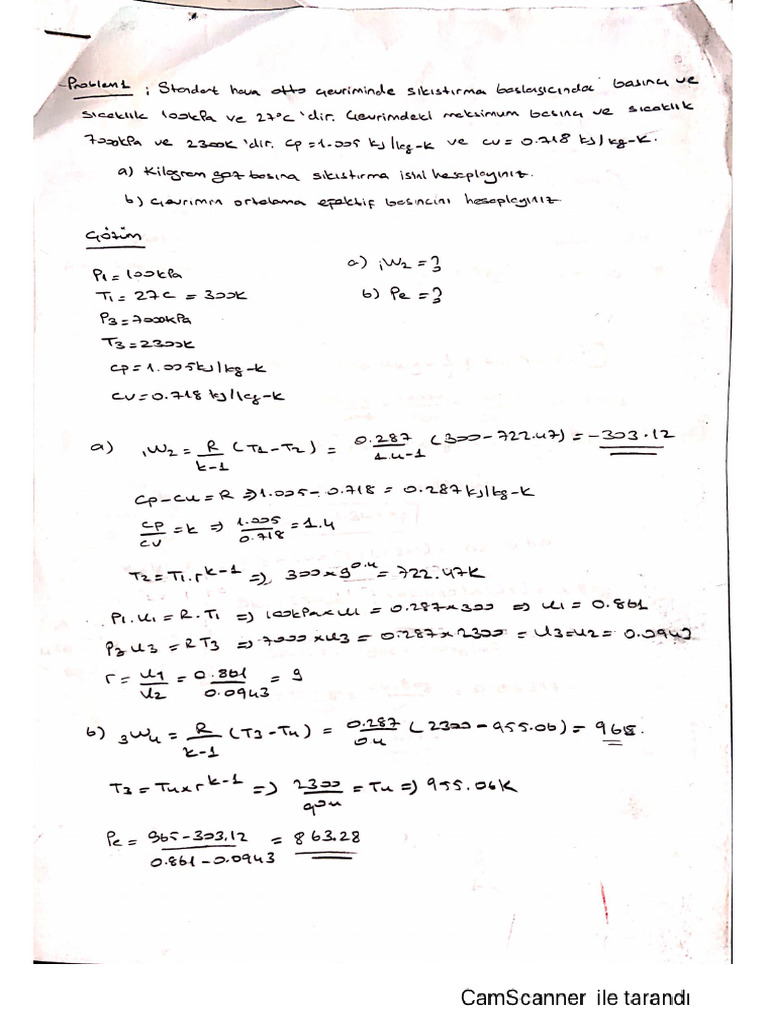 Problem1 ; Standart hava otto çevriminde sıkıstırma baslangıcında basıncı ve
sıcaklık 100kPa ve 27°C 'dir. Çevrimdeki maksimum basınç ve sıcaklık
7000kPa ve 2300K 'dir. Cp=1.005 kJ/kg-K ve cv=0.718 kJ/kg-K.
a) Kilogram gaz basına sıkıstırma isini hesaplayınız.
b) Çevrimin ortalama efektif basıncını hesaplayınız
Çözüm
P1=100kPa
a) 1W2=?
T1=27C=300K
b) Pe=?
P3=7000kPa
T3=2300K
Cp=1.005kJ/kg-K
CV=0.718 kJ/kg-K
a) 1W2 = R/k-1 (T1-T2) = 0.287/1.4-1 (300-722.47) = -303.12
Cp-Cv=R ⇒ 1.005-0.718 = 0.287kJ/kg-K
CP/CV = k ⇒ 1.005/0.718 = 1.4
T2=T1.r^k-1 ⇒ 300x9^0.4 = 722.47K
P1.V1=R.T1 ⇒ 100kPaxV1 = 0.287x300 ⇒ V1=0.861
P3V3=RT3 ⇒ 7000xV3 = 0.287x2300 = V3=V2=0.0943
r = V1/V2 = 0.861/0.0943 = 9
b) 3W4 = R/k-1 (T3-T4) = 0.287/04 (2300-955.06) = 965.
T3=T4xr^k-1 ⇒ 2300/9^04 = T4 ⇒ 955.06K
Pe = 965-303.12/0.861-0.0943 = 863.28
CamScanner ile tarandı